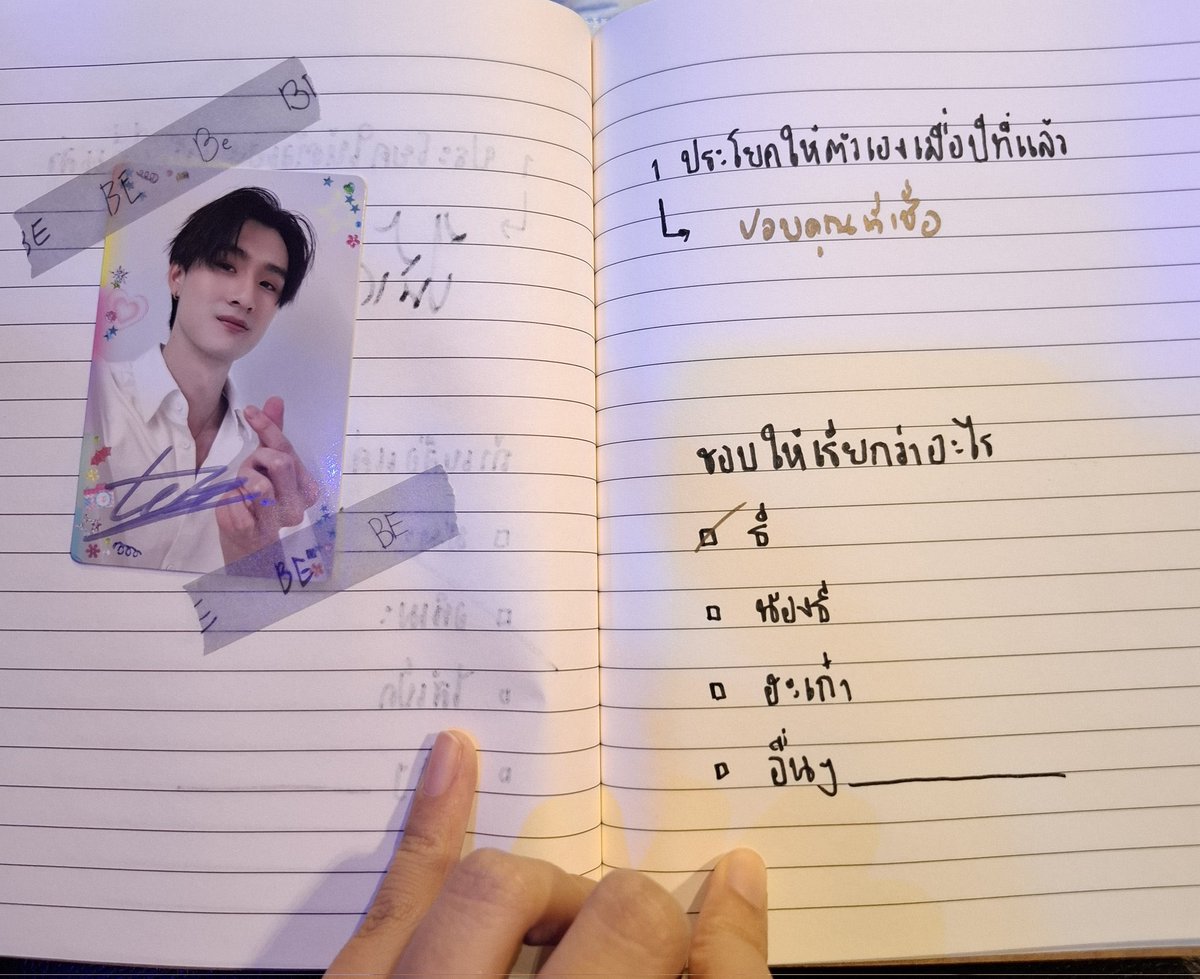 BE
BE
Be
BE
BE
1 ประโยคให้ตัวเองเมื่อปีที่แล้ว
↳ ขอบคุณที่เชื่อ
ชอบให้เรียกว่าอะไร
ธี
น้องธี
ฮะเก๋า
อื่นๆ